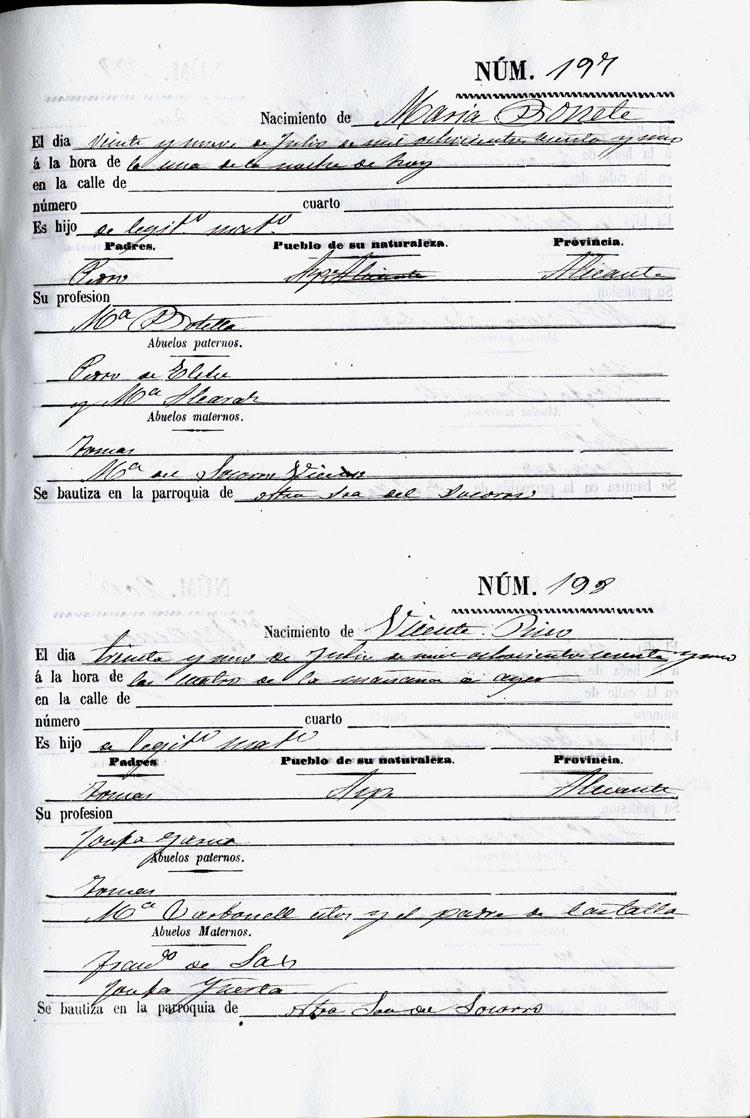 NÚM. 197
Nacimiento de Maria Bonete
El dia veinte y nueve de Julio de mil ochocientos y uno
á la hora de la una de la noche de hoy
en la calle de
número cuarto
Es hijo de legitº matº
Padres. Pueblo de su naturaleza. Provincia.
Pedro Aspe Alicante Alicante
Su profesion
Mª Botella
Abuelos paternos.
Pedro de Elche
y Mª Alcaraz
Abuelos maternos.
Tomas
Mª del Socorro
Se bautiza en la parroquia de Ntra Sra del Socorro
NÚM. 198
Nacimiento de Vicente Pico
El dia treinta y uno de Julio de mil ochocientos y uno
á la hora de las cuatro de la mañana de ayer
en la calle de
número cuarto
Es hijo de legitº matº
Padres Pueblo de su naturaleza. Provincia.
Tomas Aspe Alicante
Su profesion
Josefa Garcia
Abuelos paternos.
Tomas
Mª Carbonell estos y el padre de Castalla
Abuelos Maternos.
Francº de Sax
Josefa
Se bautiza en la parroquia de Ntra Sra del Socorro